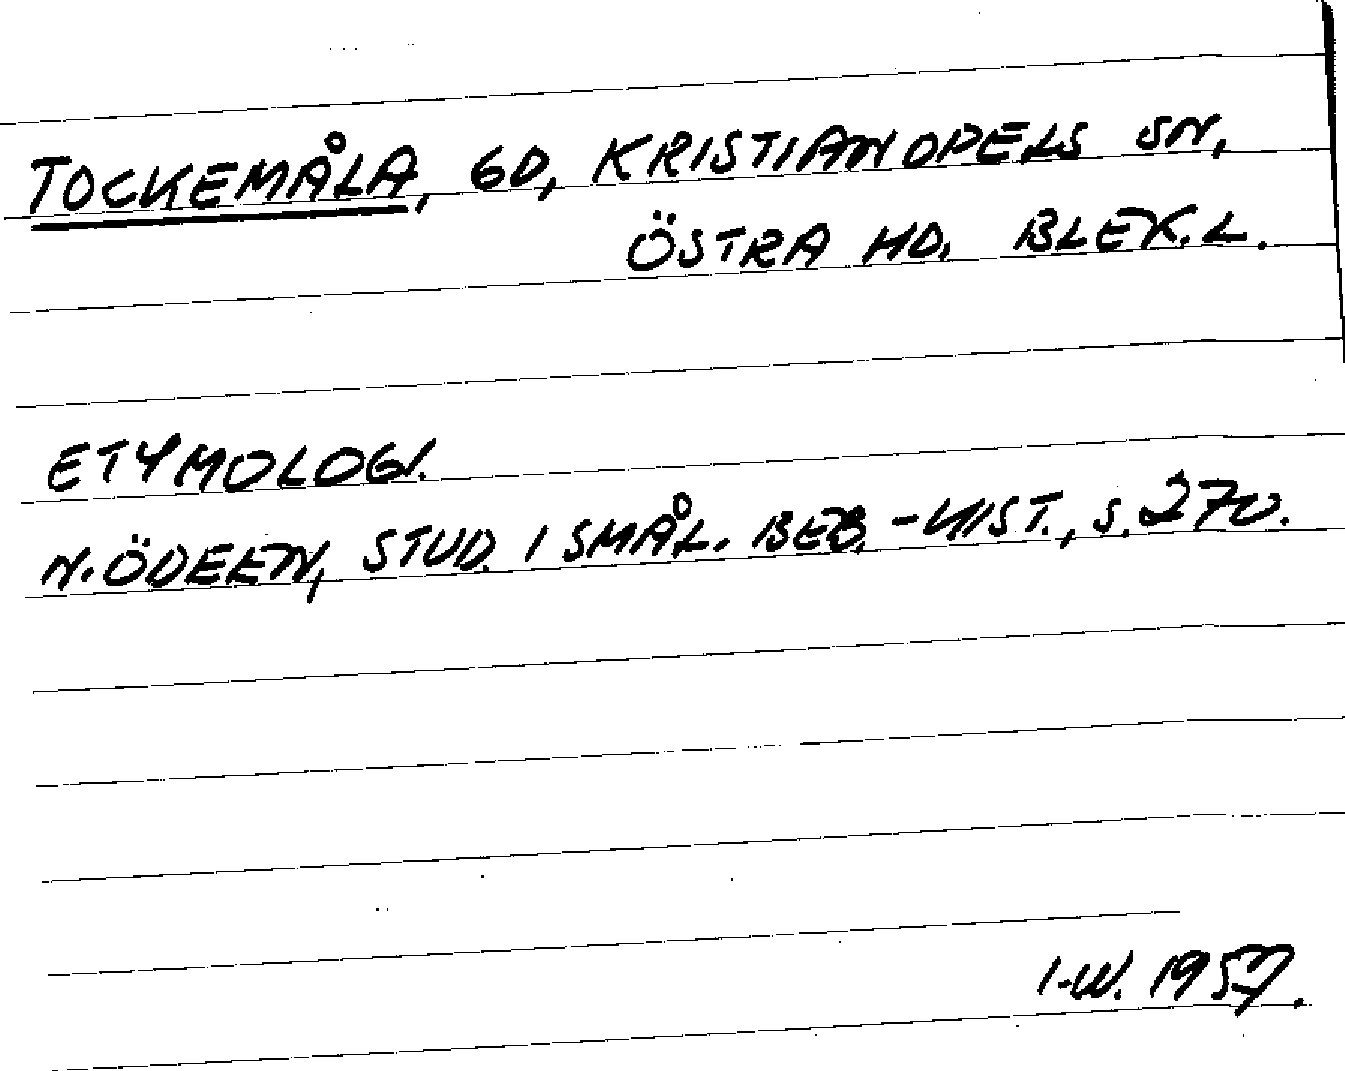 TOCKEMÅLA, GD, KRISTIANOPELS SN,
ÖSTRA HD. BLEK. L.
ETYMOLOGI.
N. ÖDEEN, STUD. I SMÅL. BEB. - HIST., S. 270.
I-W. 1957.